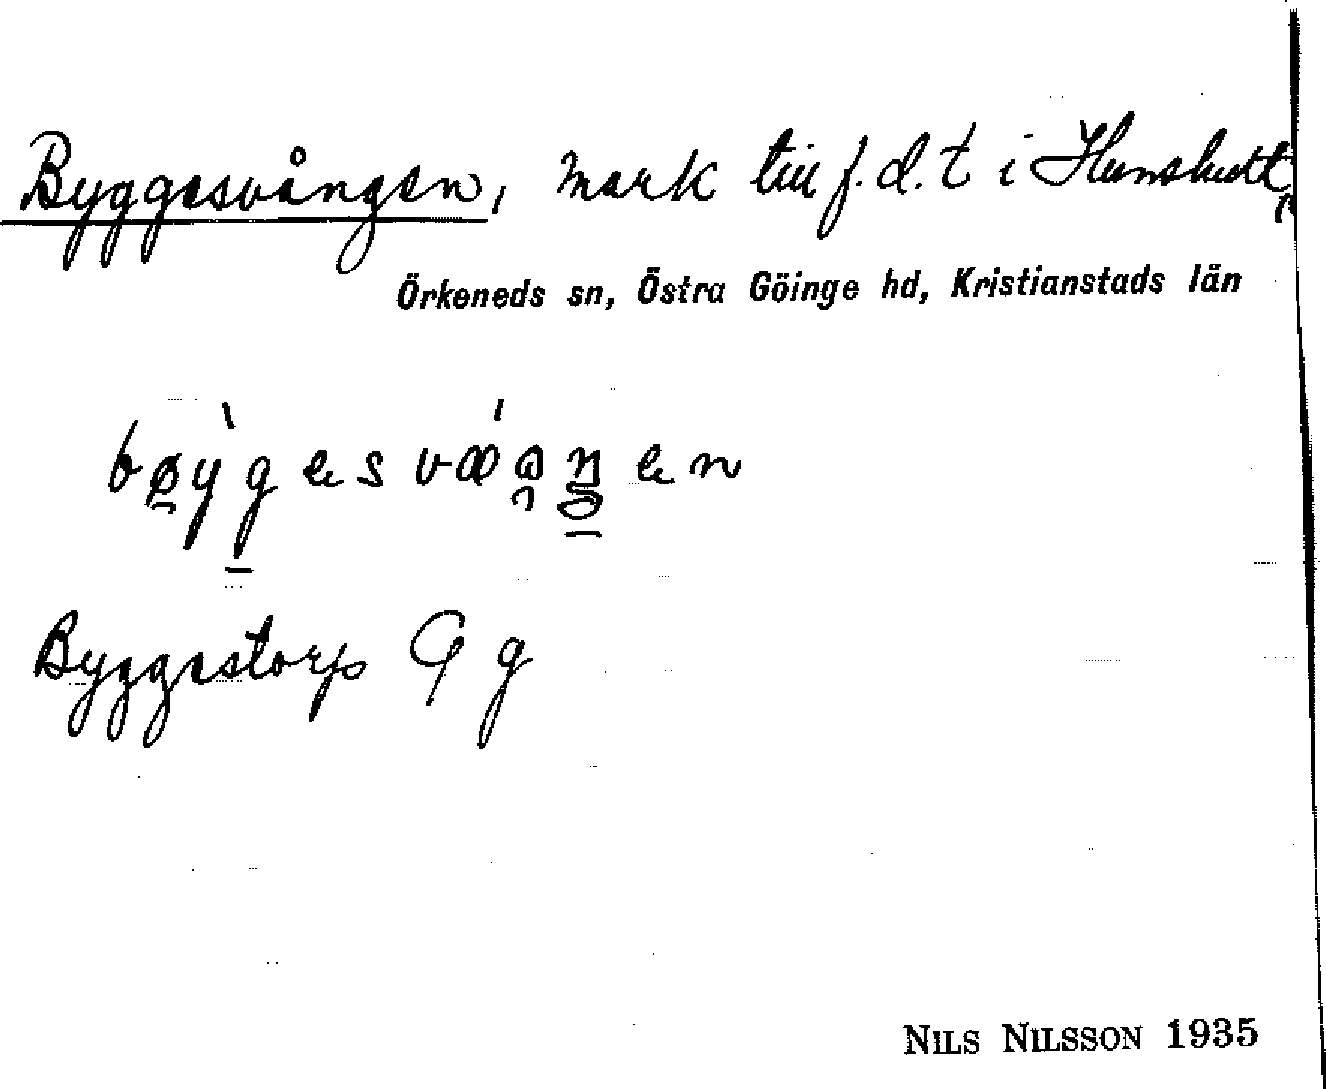 Byggesvången, mark till f.d. t i Hunshult
Örkeneds sn, Östra Göinge hd, Kristianstads län
Byggestorp G g
NILS NILSSON 1935